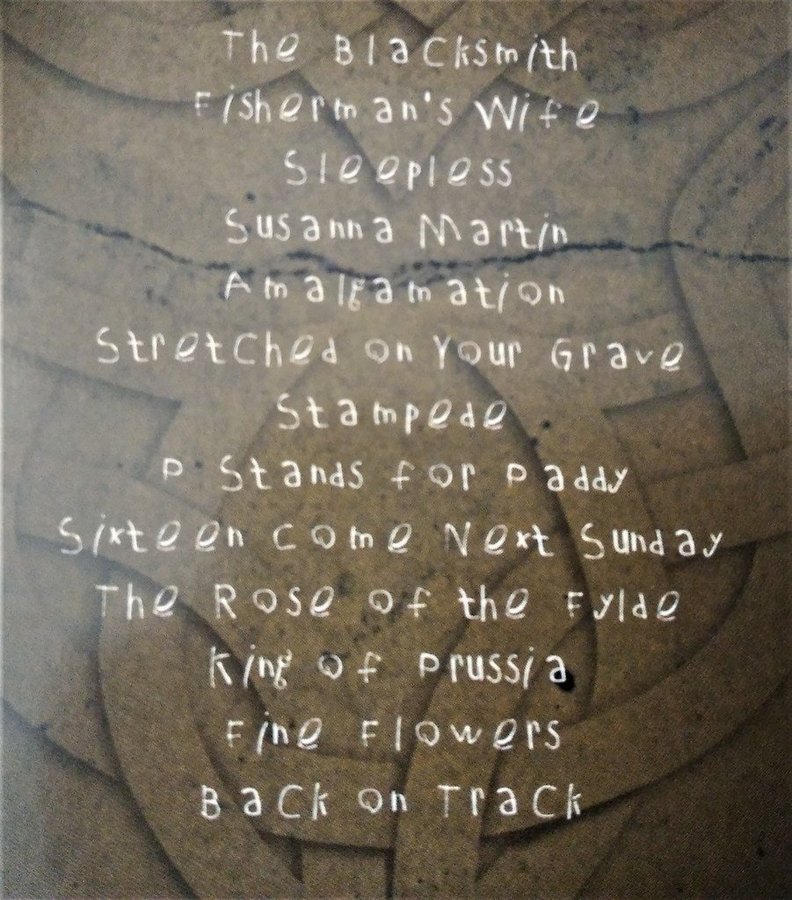 The Blacksmith
Fisherman's Wife
Sleepless
Susanna Martin
Amalgamation
Stretched on Your Grave
Stampede
P Stands for Paddy
Sixteen Come Next Sunday
The Rose of the Fylde
King of Prussia
Fine Flowers
Back on Track